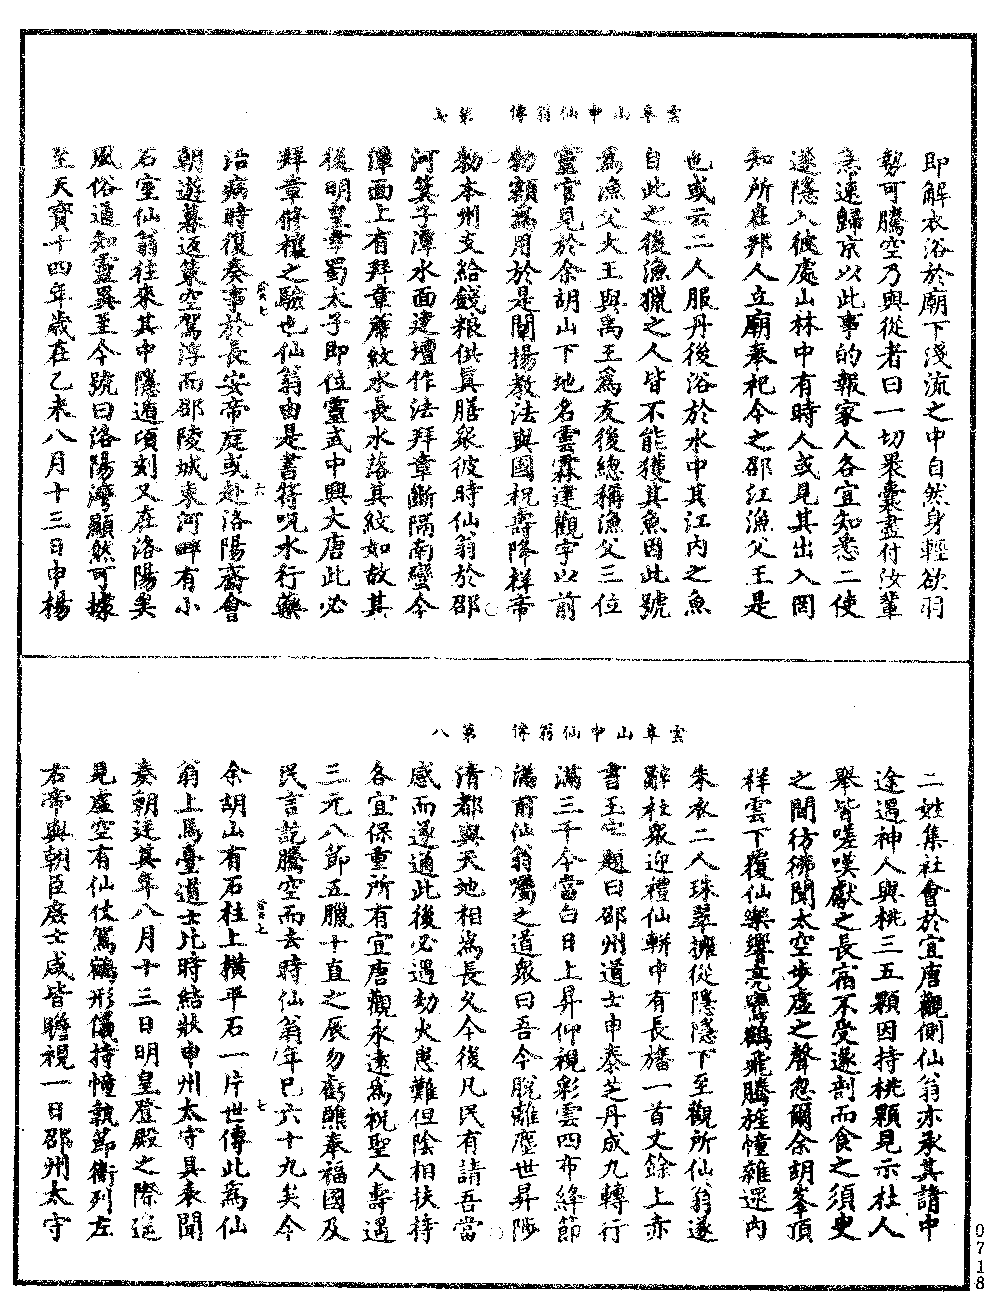 雲阜山申仙翁傳　第七
即解衣浴於廟下淺流之中自然身輕欲羽
勢可騰空乃與從者曰一切果囊盡付汝輩
急速歸京以此事的報家人各宜知悉二使
遂隱入彼處山林中有時人或見其出入罔
知所在邦人立廟奉祀今之邵江漁父王是
也或云二人服丹後浴於水中其江內之魚
自此之後漁獵之人皆不能獲其魚因此號
為漁父大王與禹王為友後總稱漁父三位
靈官見於余胡山下地名雲霖建觀宇以前
勑額為用於是闡揚教法與國祝壽降祥帝
勑本州支給錢粮供真膳眾彼時仙翁於邵
河箕子潭水面建壇作法拜章斷隔南蠻今
潭面上有拜章蓆紋水長水落其紋如故其
後明皇幸蜀太子即位靈武中興大唐此必
拜章脩禳之驗也仙翁由是書符呪水行藥
治病時復奏事於長安帝庭或赴洛陽齋會
朝遊暮返乘空駕浮而邵陵城東河畔有小
石室仙翁往來其中隱遁頃刻又在洛陽矣
風俗通知靈異至今號曰洛陽灣顯然可據
至天寶十四年歲在乙未八月十三日申楊
六
雲阜山申仙翁傳　第八
二姓集社會於宜唐觀側仙翁亦承其請中
途遇神人與桃三五顆因持桃顆見示社人
舉皆嗟嘆獻之長宿不受遂剖而食之須臾
之間彷彿聞太空步虛之聲忽爾余胡峯頂
祥雲下覆仙樂響亮鸞鶴飛騰旌幢雜遝內
朱衣二人珠翠擁從隱隱下至觀所仙翁遂
辭社眾迎禮仙軿中有長旛一首丈餘上亦
書玉字題曰邵州道士申泰芝丹成九轉行
滿三千今當白日上昇仰視彩雲四布絳節
滿前仙翁囑之道眾曰吾今脫離塵世昇陟
清都與天地相為長久今後凡民有請吾當
感而遂通此後必遇劫火患難但陰相扶持
各宜保重所有宜唐觀永遠為祝聖人壽遇
三元八節五臘十直之辰勿虧醮奉福國及
民言訖騰空而去時仙翁年巳六十九矣今
余胡山有石柱上橫平石一片世傳此為仙
翁上馬臺道士比時結狀申州太守具表聞
奏朝廷其年八月十三日明皇登殿之際遙
見虛空有仙仗鸞鶴形儀持幢執節衛列左
右帝與朝臣處士咸皆瞻視一日邵州太守
七
0718